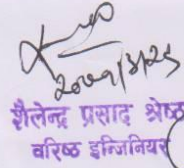 २०७१/५/२८
शैलेन्द्र प्रसाद श्रेष्ठ
वरिष्ठ इन्जिनियर